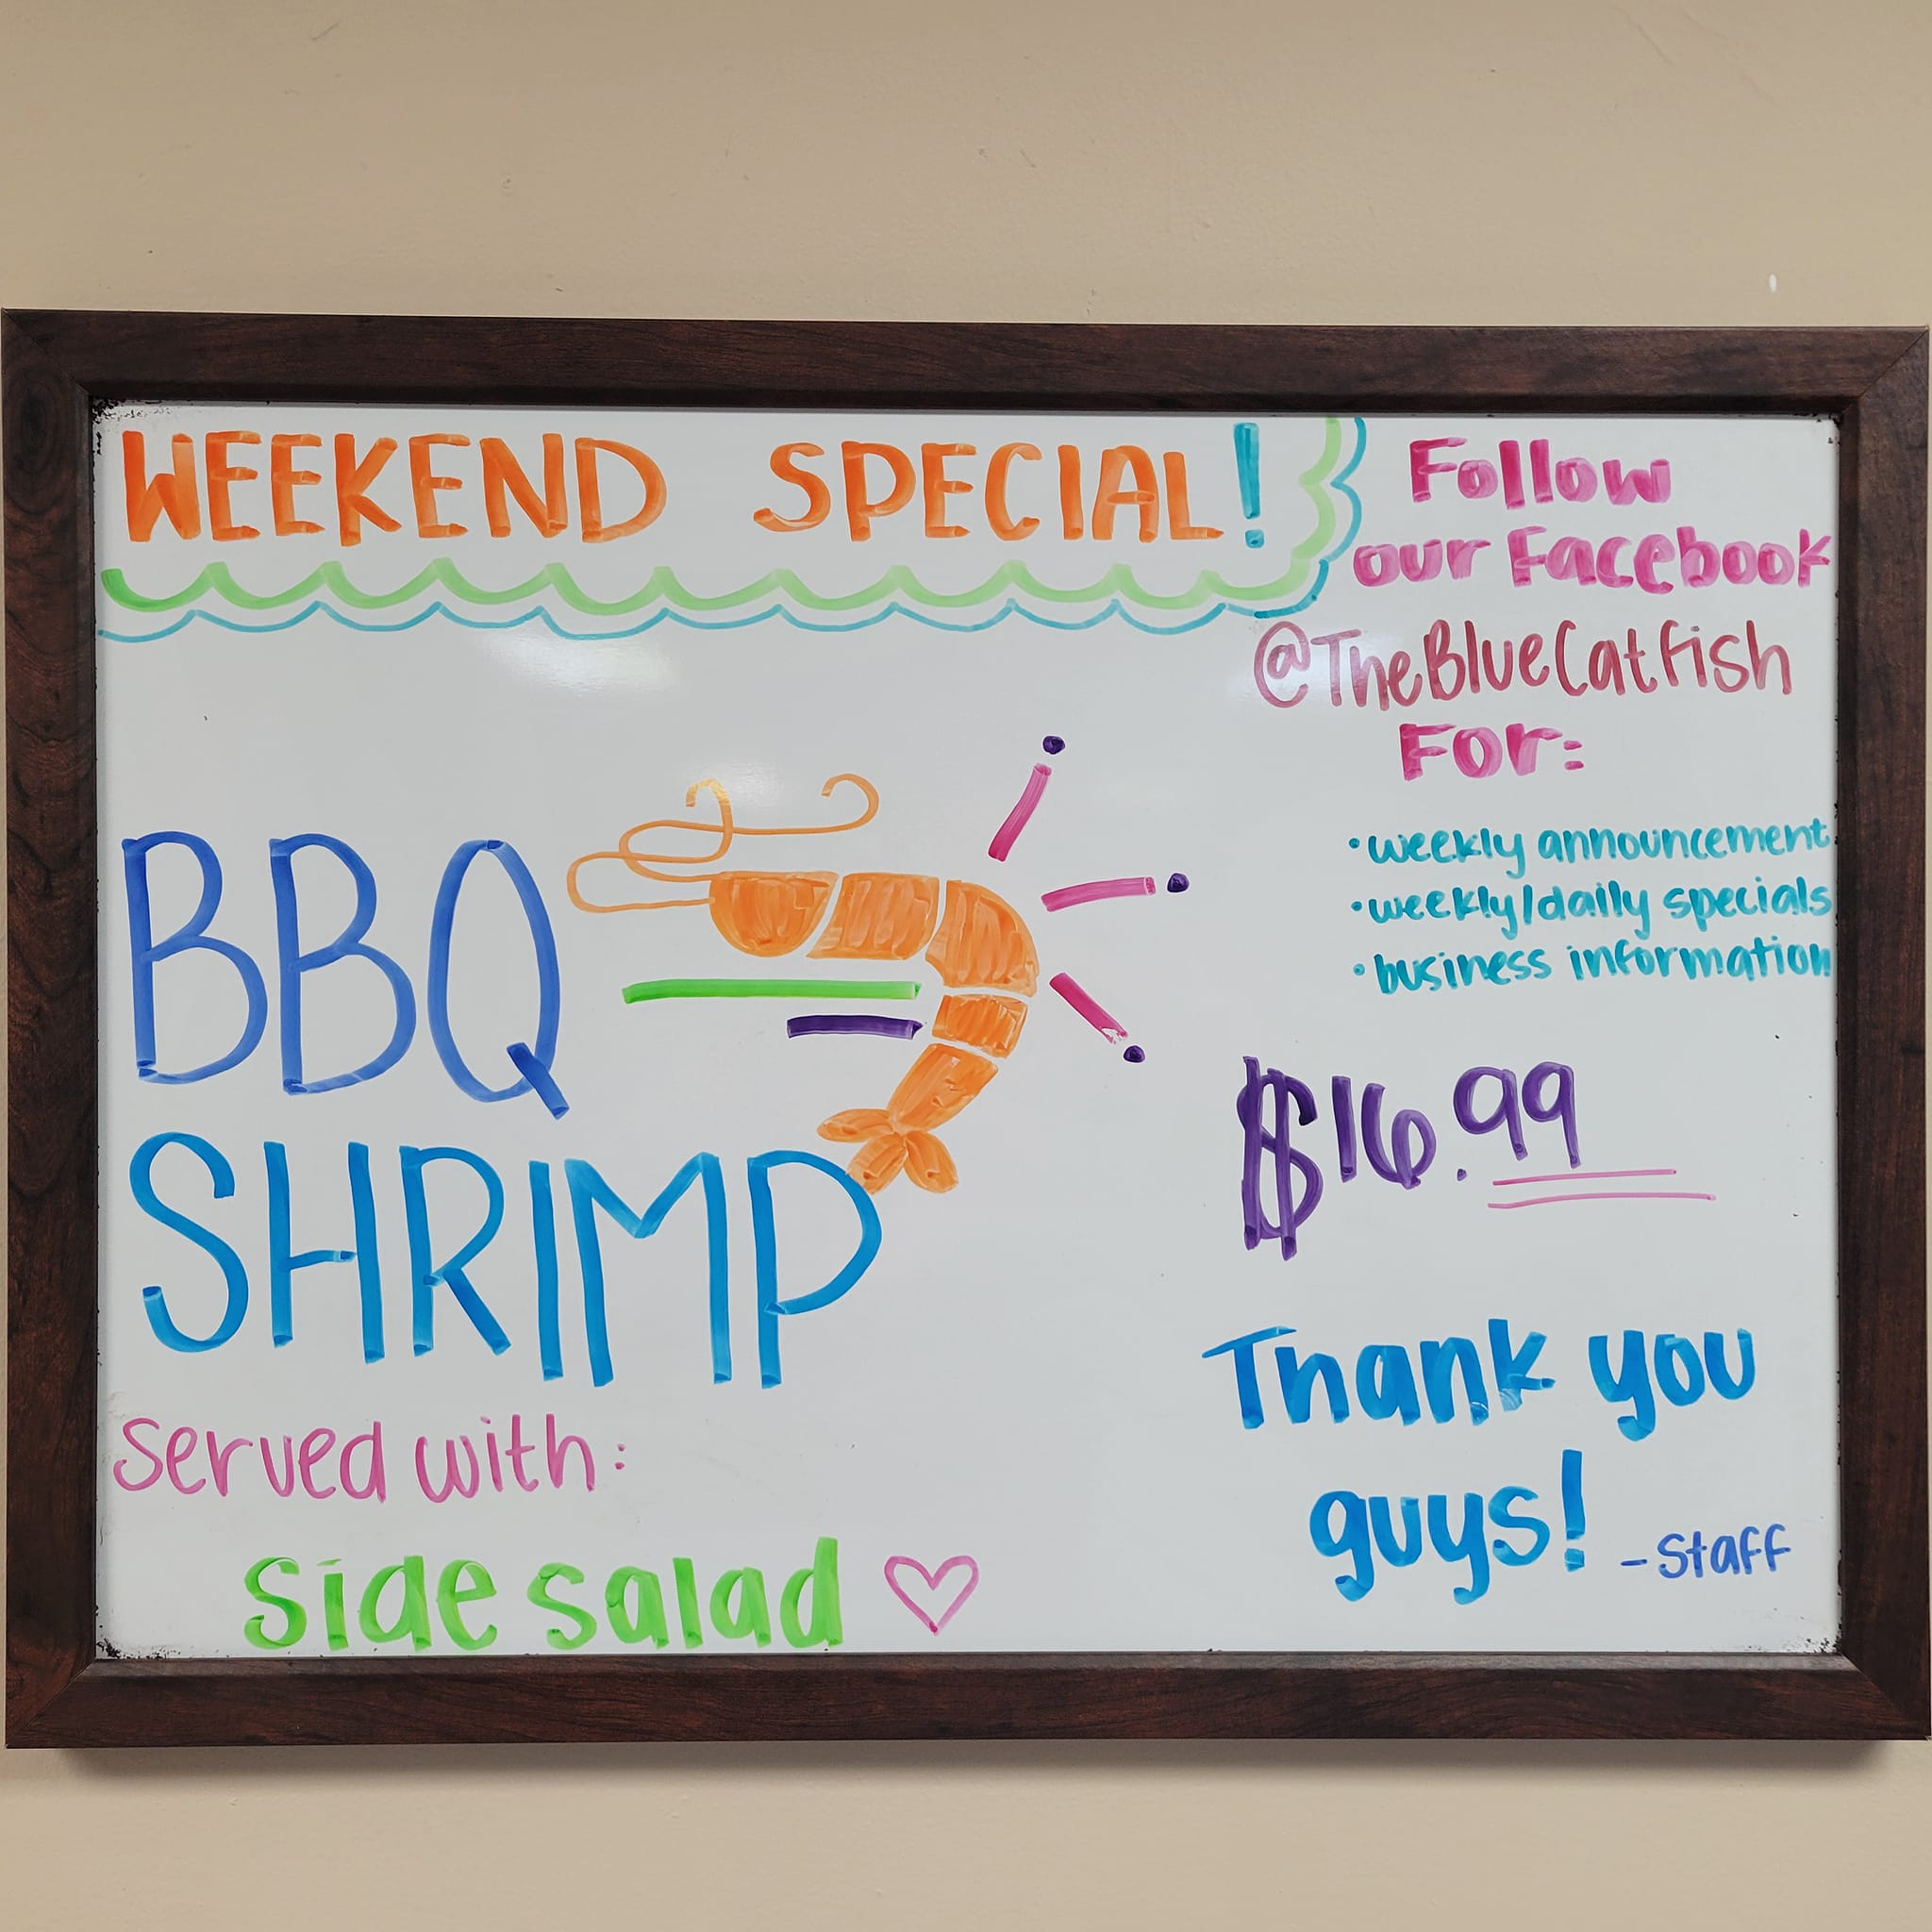 WEEKEND SPECIAL!
BBQ
SHRIMP
Served with:
side salad
Follow
our Facebook
@TheBlueCatfish
For:
• weekly announcement
• weekly/daily specials
• business information
$16.99
Thank you
guys!
- Staff